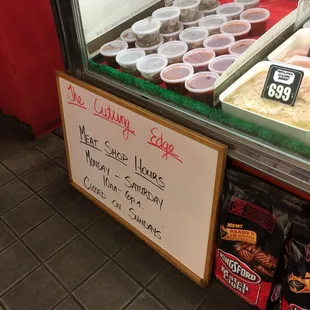 The Cutting Edge
Meat Shop Hours
Monday - Saturday
10am - 6pm
Closed on Sundays
699
KINGSFORD